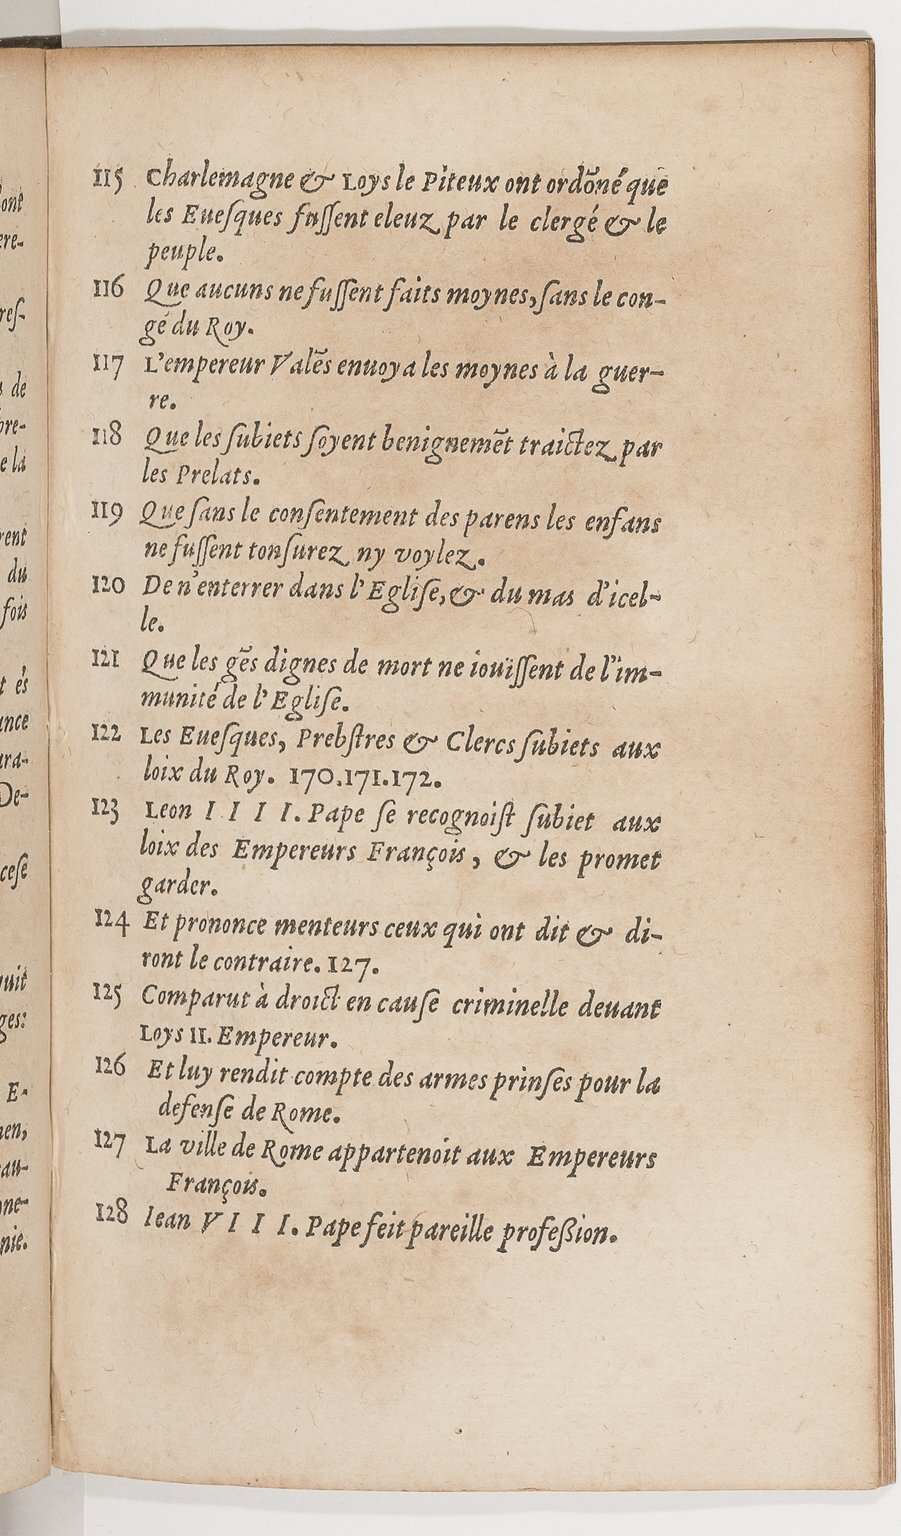 115 Charlemagne & Loys le Piteux ont ordõné que
les Euesques fussent eleuz par le clergé & le
peuple.
116 Que aucuns ne fussent faits moynes, sans le con-
gé du Roy.
117 L'empereur Valẽs enuoya les moynes à la guer-
re.
118 Que les subiets soyent benignemẽt traictez par
les Prelats.
119 Que sans le consentement des parens les enfans
ne fussent tonsurez ny voylez.
120 De n'enterrer dans l'Eglise, & du mas d'icel-
le.
121 Que les gẽs dignes de mort ne iouïssent de l'im-
munité de l'Eglise.
122 Les Euesques, Prebstres & Clercs subiets aux
loix du Roy. 170.171.172.
123 Leon I I I I. Pape se recognoist subiet aux
loix des Empereurs François, & les promet
garder.
124 Et prononce menteurs ceux qui ont dit & di-
ront le contraire. 127.
125 Comparut à droict en cause criminelle deuant
Loys II. Empereur.
126 Et luy rendit compte des armes prinses pour la
defense de Rome.
127 La ville de Rome appartenoit aux Empereurs
François.
128 Iean V I I I. Pape feit pareille profeßion.